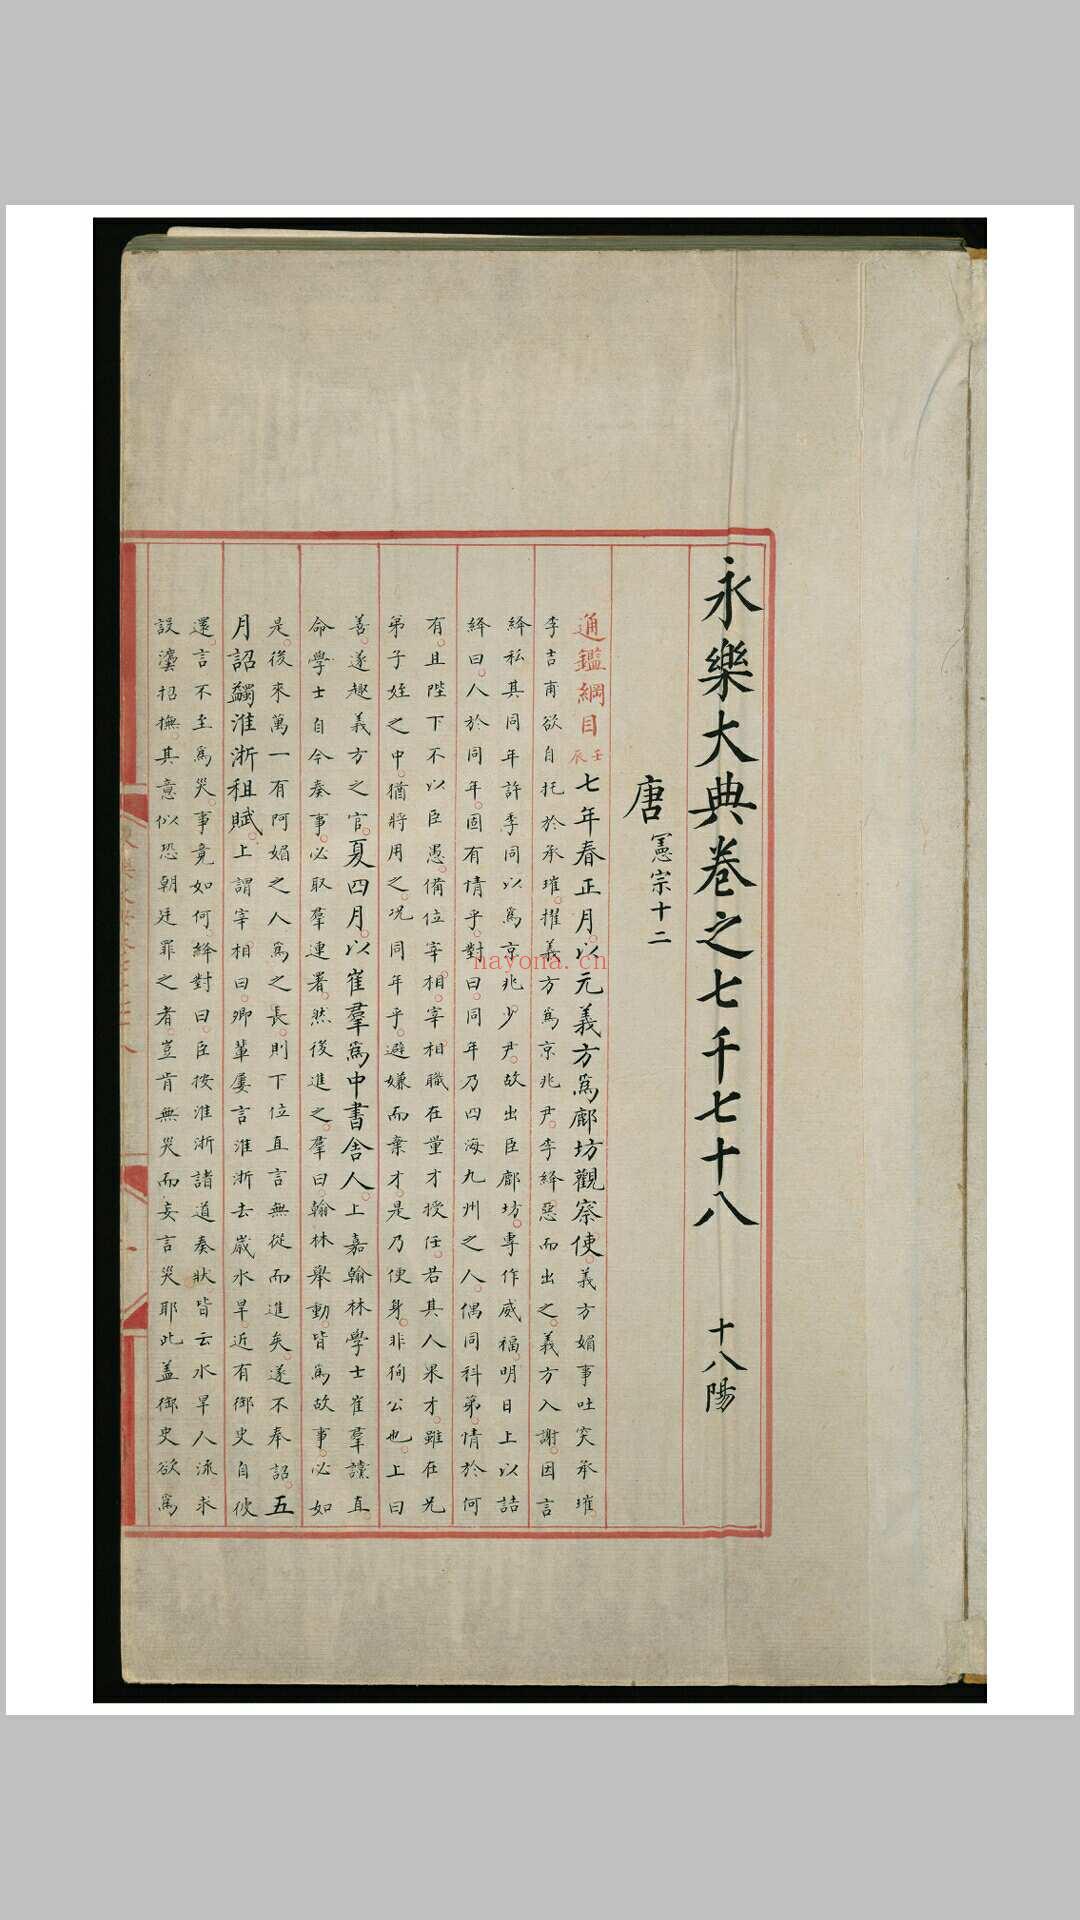 永樂大典卷之七千七十八 十八陽
唐 憲宗十二
通鑑綱目 壬辰 七年春正月。以元義方爲鄜坊觀察使。義方媚事吐突承璀。
李吉甫欲自托於承璀。擢義方爲京兆尹。李絳惡而出之。義方入謝。因言
絳私其同年許季同以爲京兆少尹。故出臣鄜坊。專作威福。明日上以詰
絳曰。人於同年。固有情乎。對曰。同年乃四海九州之人。偶同科第。情於何
有。且陛下不以臣愚。備位宰相。宰相職在量才授任。若其人果才。雖在兄
弟子姪之中。猶將用之。况同年乎。避嫌而棄才。是乃便身。非狥公也。上曰
善。遂趣義方之官。夏四月。以崔羣爲中書舍人。上嘉翰林學士崔羣讜直。
命學士自今奏事。必取羣連署。然後進之。羣曰。翰林舉動。皆爲故事。必如
是。後來萬一有阿媚之人爲之長。則下位直言無從而進矣。遂不奉詔。五
月詔蠲淮浙租賦。上謂宰相曰。卿輩屢言淮浙去歲水旱。近有御史自彼
還。言不至爲災。事竟如何。絳對曰。臣按淮浙諸道奏狀。皆云水旱人流。求
設灋招撫。其意似恐朝廷罪之者。豈肯無災而妄言災耶。此盖御史欲爲
nayona.cn